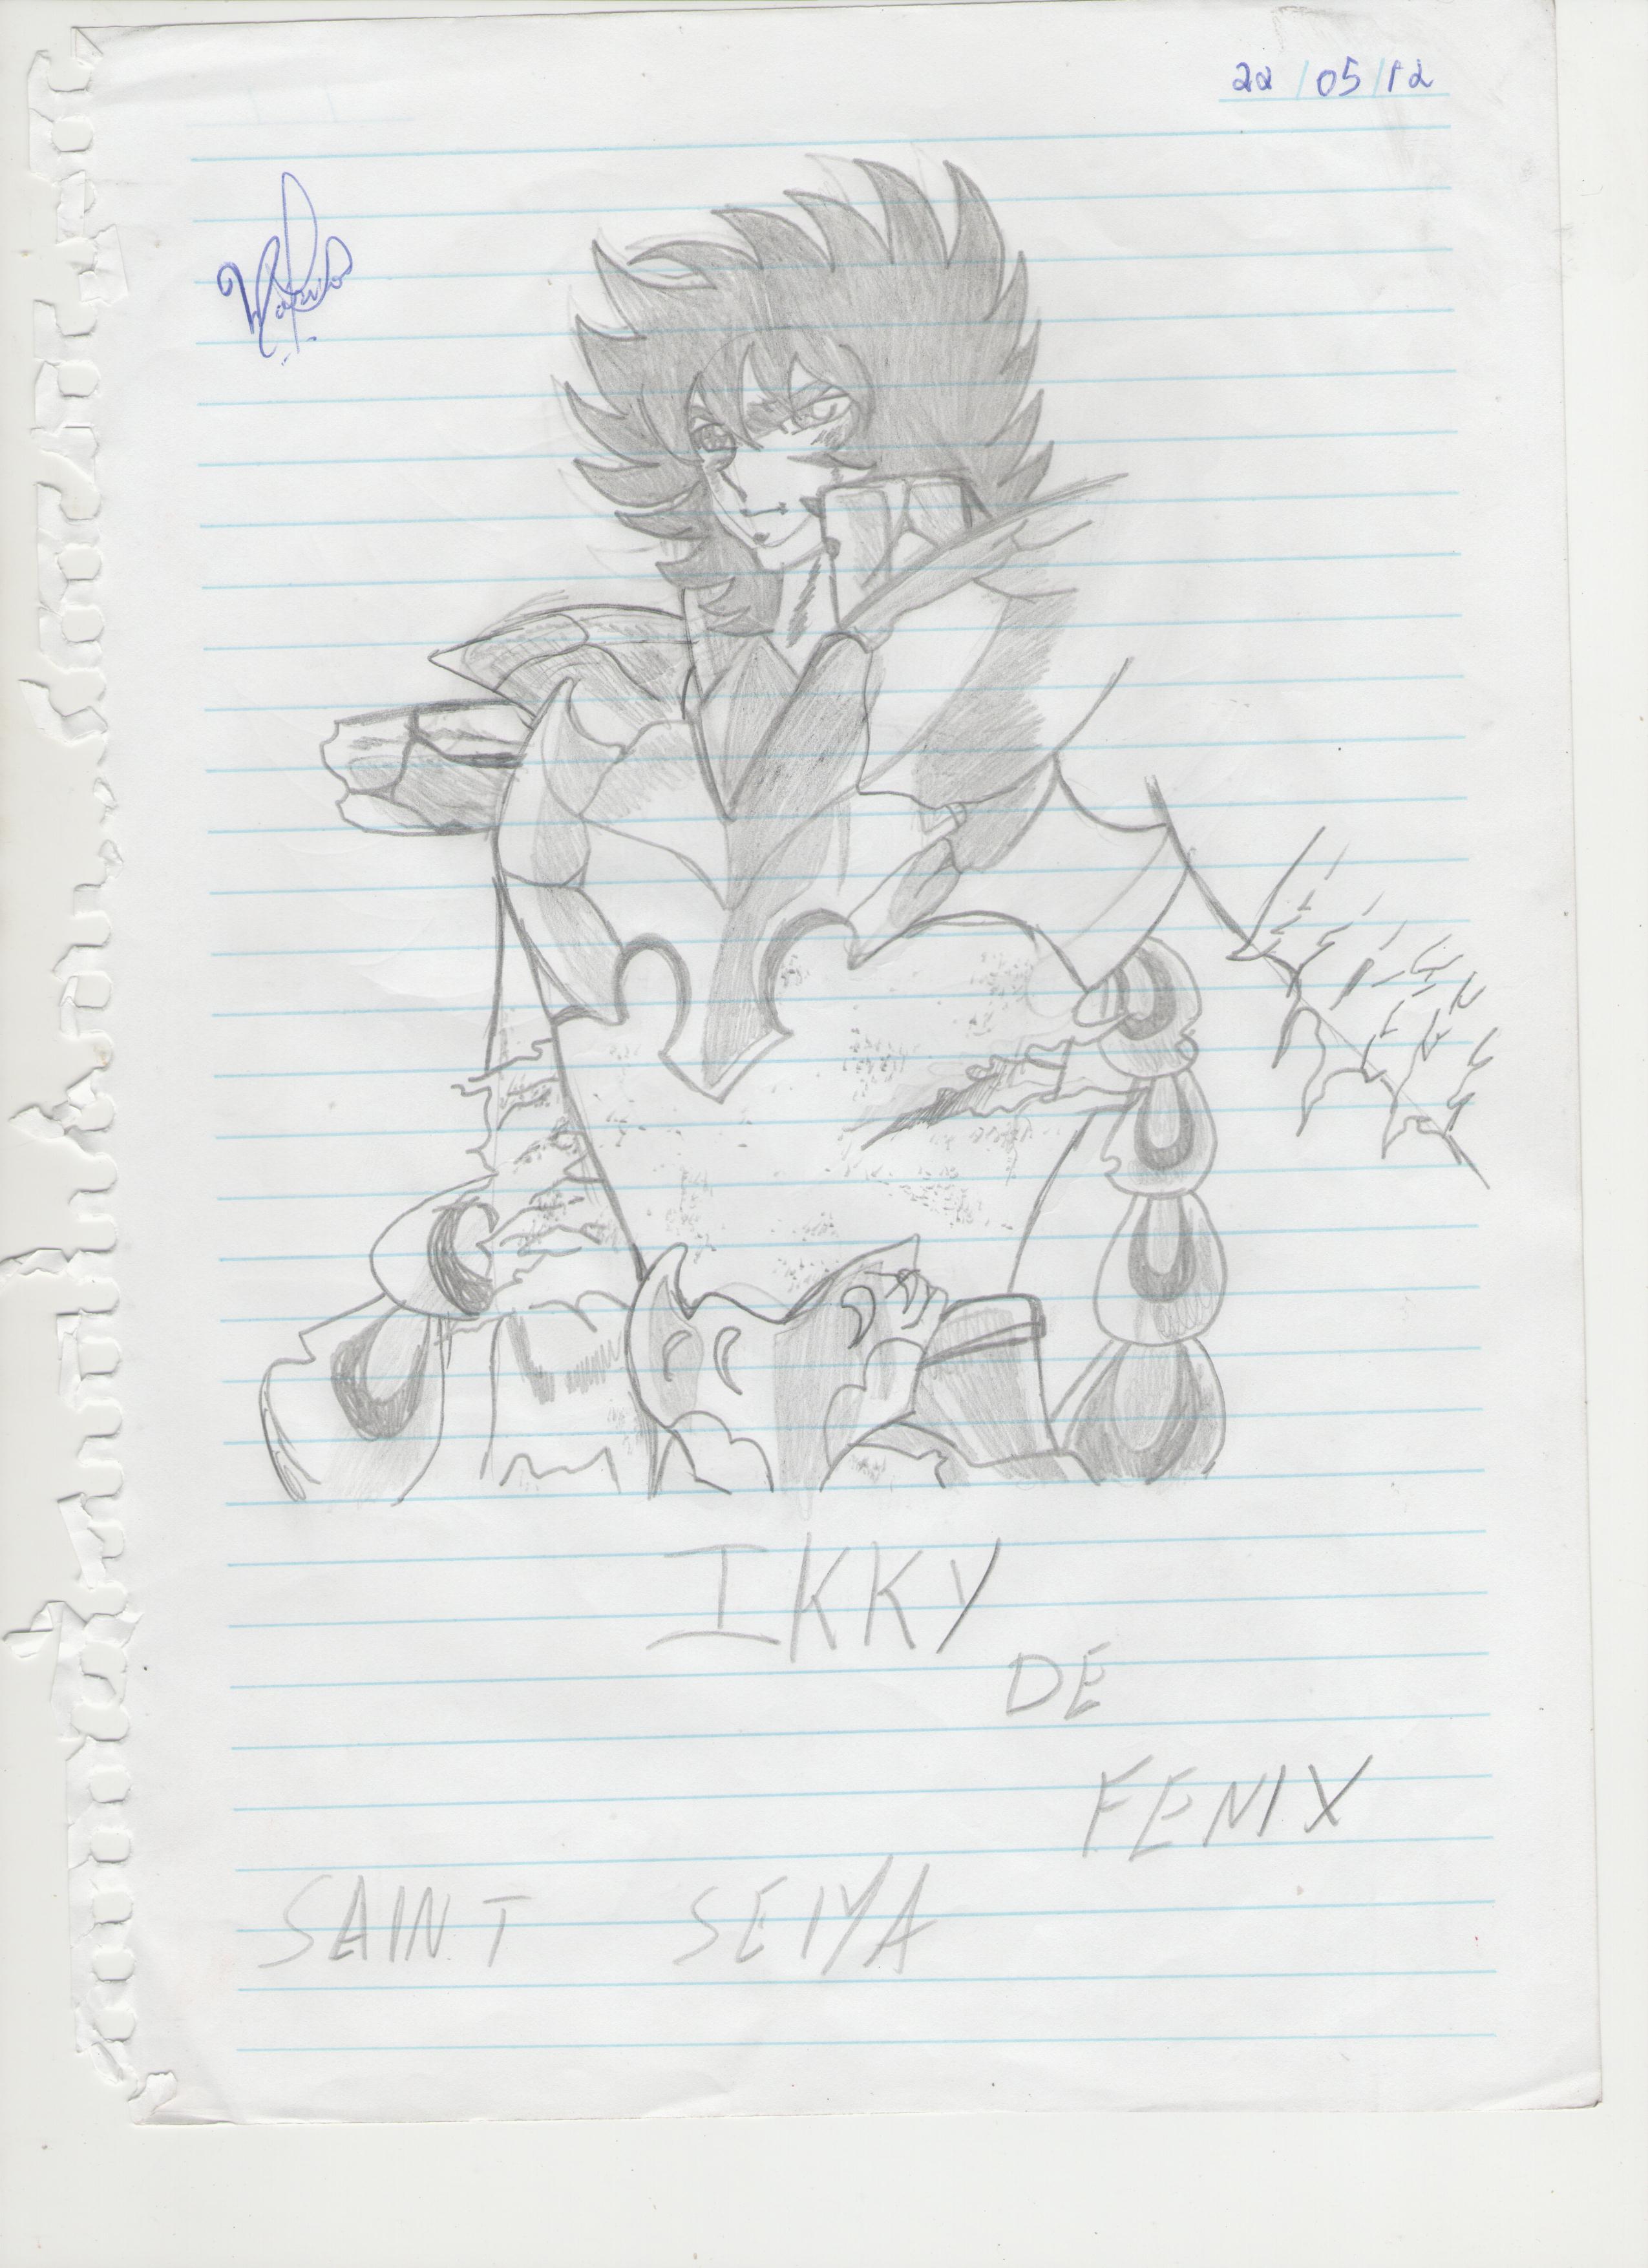 22/05/12
IKKY
DE
FENIX
SAINT SEIYA